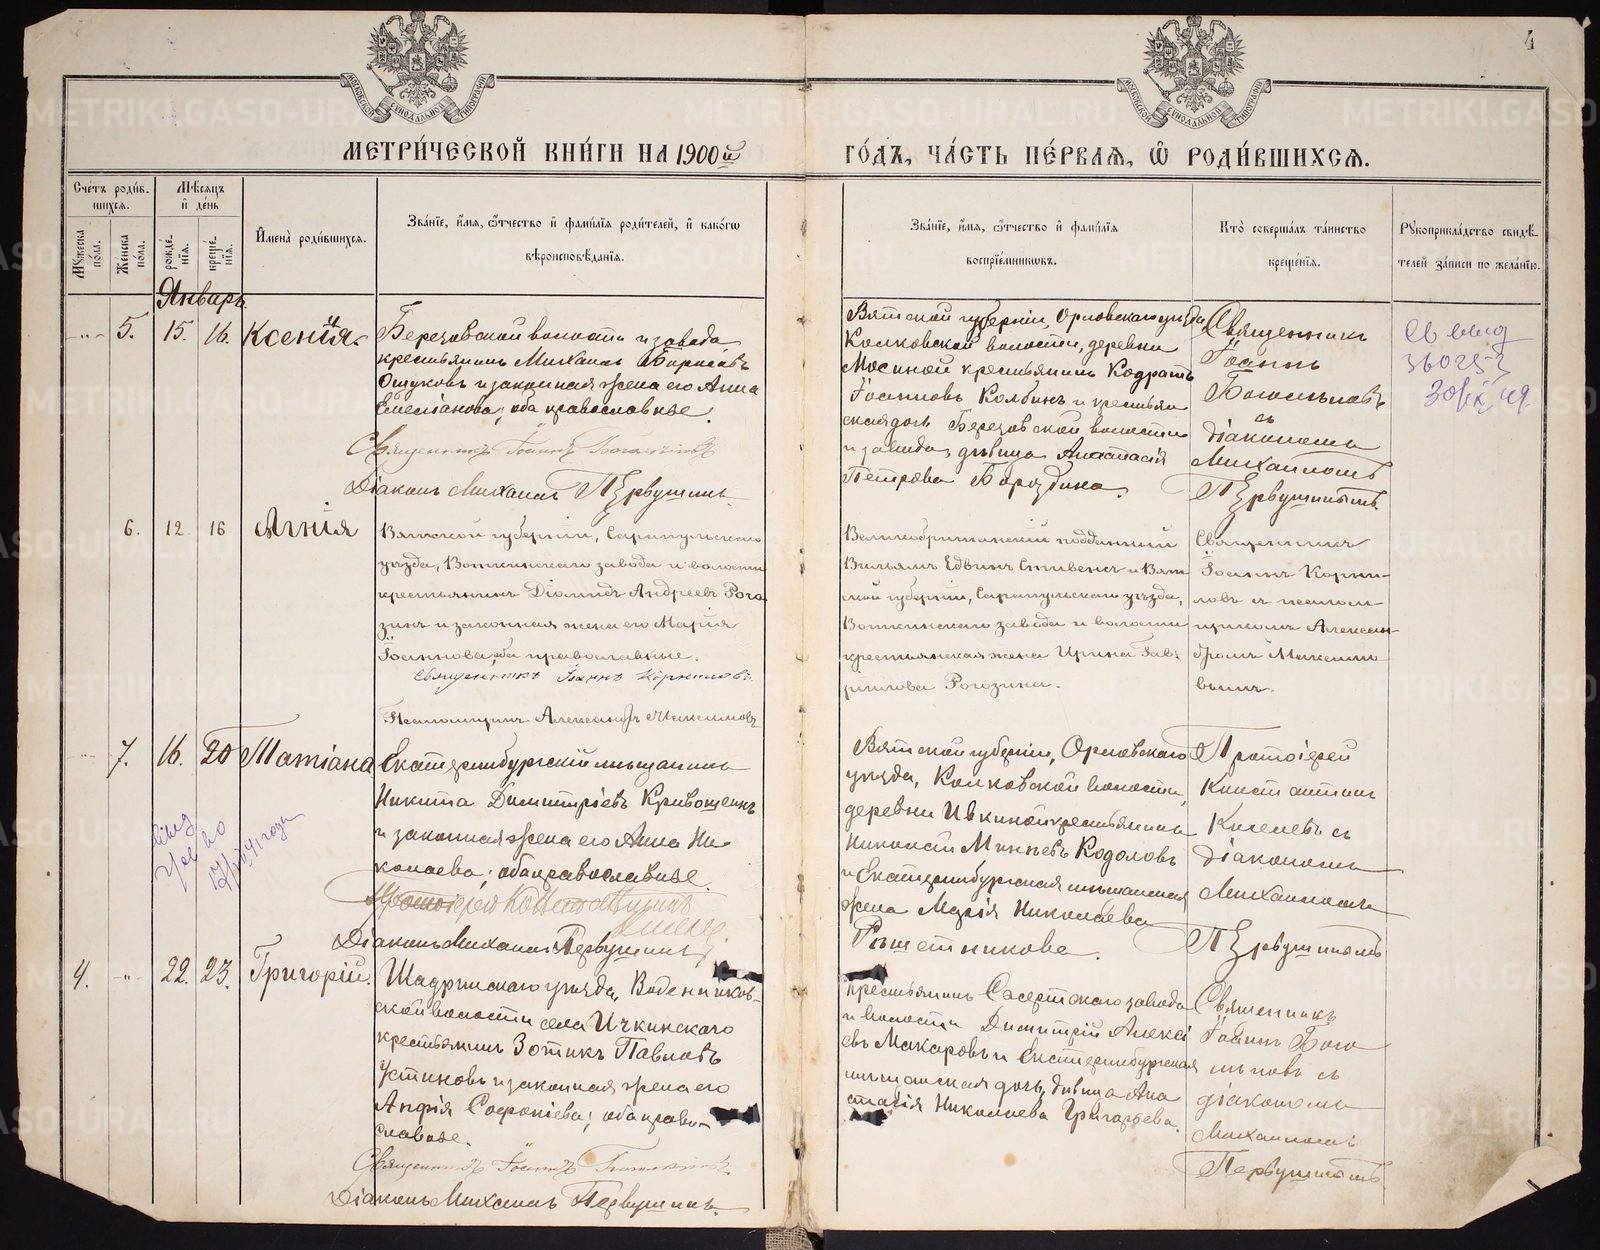 4
МОСКОВСКОЙ СѴНОДАЛЬНОЙ ТИПОГРАФІИ
МОСКОВСКОЙ СѴНОДАЛЬНОЙ ТИПОГРАФІИ
МЕТРИ́ЧЕСКОЙ КНИ́ГИ НА 1900й
ГО́ДЪ, ЧА́СТЬ ПЕ́РВАѦ, Ѡ҆ РОДИ́ВШИХСѦ.
Сче́тъ роди́вшихсѧ.
Мꙋ́жеска по́ла.
Же́нска по́ла.
Мѣ́сѧцъ и҆ де́нь
рожде́нїѧ.
креще́нїѧ.
И҆мена̀ роди́вшихсѧ.
Зва́нїе, и҆́мѧ, ѻ҆́тчество и҆ фами́лїѧ роди́телей, и҆ како́гѡ
вѣроисповѣ́данїѧ.
Зва́нїе, и҆́мѧ, ѻ҆́тчество и҆ фами́лїѧ
воспрїе́мникѡвъ.
Кто̀ соверша́лъ та́инство
креще́нїѧ.
Рꙋкоприкла́дство свидѣ́телей за́писи по жела́нїю.
Январь
5. 15. 16. Ксенія.
Березовской волости и завода
крестьянинъ Михаилъ Борисовъ
Ошуковъ и законная жена его Анна
Емеліанова; оба православные.
Священникъ Іоаннъ
Діаконъ Михаилъ Первушинъ.
Вятской губерніи, Орловскаго уѣзда
Колковской волости, деревни
Мосиной крестьянинъ Кодратъ
Іоанновъ Колбинъ и крестьян
ская дочь Березовской волости
и завода, дѣвица Анастасія
Петрова Бороздина.
Священникъ
Іоаннъ
съ
діакономъ
Михаиломъ
Первушинымъ.
6. 12 16 Агнія
Вятской губерніи, Сарапульскаго
уѣзда, Воткинскаго завода и волости
крестьянинъ Діомидъ Андреевъ Рого
зинъ и законная жена его Марія
Іоаннова, оба православные.
Священникъ Іоаннъ Корниловъ.
Псаломщикъ Александръ Максимовъ
Великобританскій подданный
Вильямъ Едвинъ Стивенсъ и Вят
ской губерніи, Сарапульскаго уѣзда,
Воткинскаго завода и волости
крестьянская жена Ирина Гав
риилова Рогозина.
Священникъ
Іоаннъ Корни-
ловъ и псалом-
щикомъ Алексан-
дромъ Максимо
вымъ.
7. 16. 20 Татіана
Екатеринбургскій мѣщанинъ
Никита Димитріевъ Кривощекъ
и законная жена его Анна Ни
колаева; оба православные.
Діаконъ Михаилъ Первушинъ
Вятской губерніи, Орловскаго
уѣзда, Колковской волости,
деревни Ивкиной крестьянинъ
Николай
и Екатеринбургская мѣщанская
жена Марія Николаева
Рѣшетникова.
Протоіерей
Константинъ
съ
діакономъ
Михаиломъ
Первушинымъ
4. 22. 23. Григорій.
Шадринскаго уѣзда, Воденников-
ской волости села Ичкинскаго
крестьянинъ Зотикъ Павловъ
Устиновъ и законная жена его
Анфія Софоніева; оба право-
славные.
Священникъ Іоаннъ
Діаконъ Михаилъ Первушинъ.
Крестьянинъ Сысертскаго завода
и волости Димитрій Алексі
евъ Макаровъ и Екатеринбургская
мѣщанская дочь, дѣвица Ана
стасія Николаева Григорьева.
Священникъ
Іоаннъ Бого
съ
діакономъ
Михаиломъ
Первушинымъ.